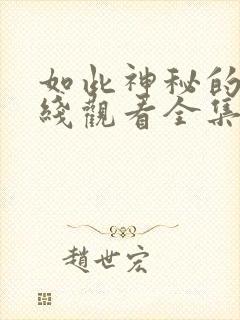 如此神秘的
綫觀看全集
趙世宏